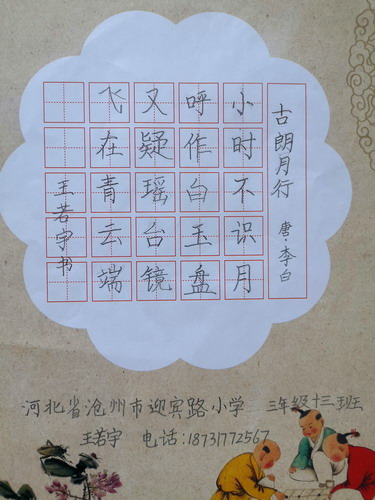 古朗月行 唐·李白
小时不识月
呼作白玉盘
又疑瑶台镜
飞在青云端
王若宇书
河北省沧州市迎宾路小学 三年级十三班
王若宇 电话:18731772567